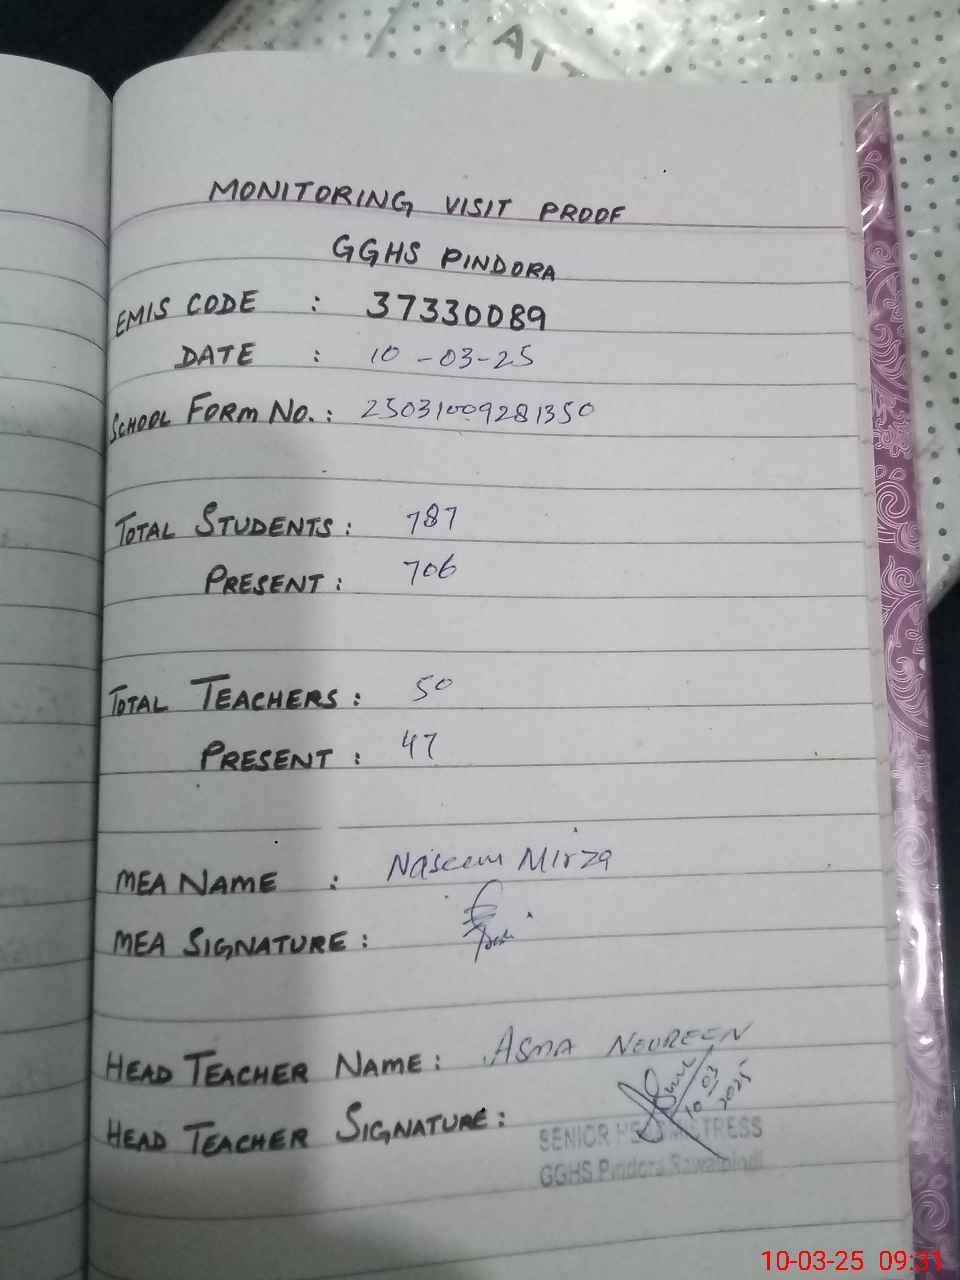 MONITORING VISIT PROOF
GGHS PINDORA
EMIS CODE : 37330089
DATE : 10-03-25
SCHOOL FORM NO.: 25031009281350
TOTAL STUDENTS: 787
PRESENT: 706
TOTAL TEACHERS: 50
PRESENT: 47
MEA NAME : Naseem Mirza
MEA SIGNATURE:
HEAD TEACHER NAME: ASMA NOUREEN
HEAD TEACHER SIGNATURE:
10 03 2025
SENIOR HEADMISTRESS
GGHS Pindora Rawalpindi
10-03-25 09:31